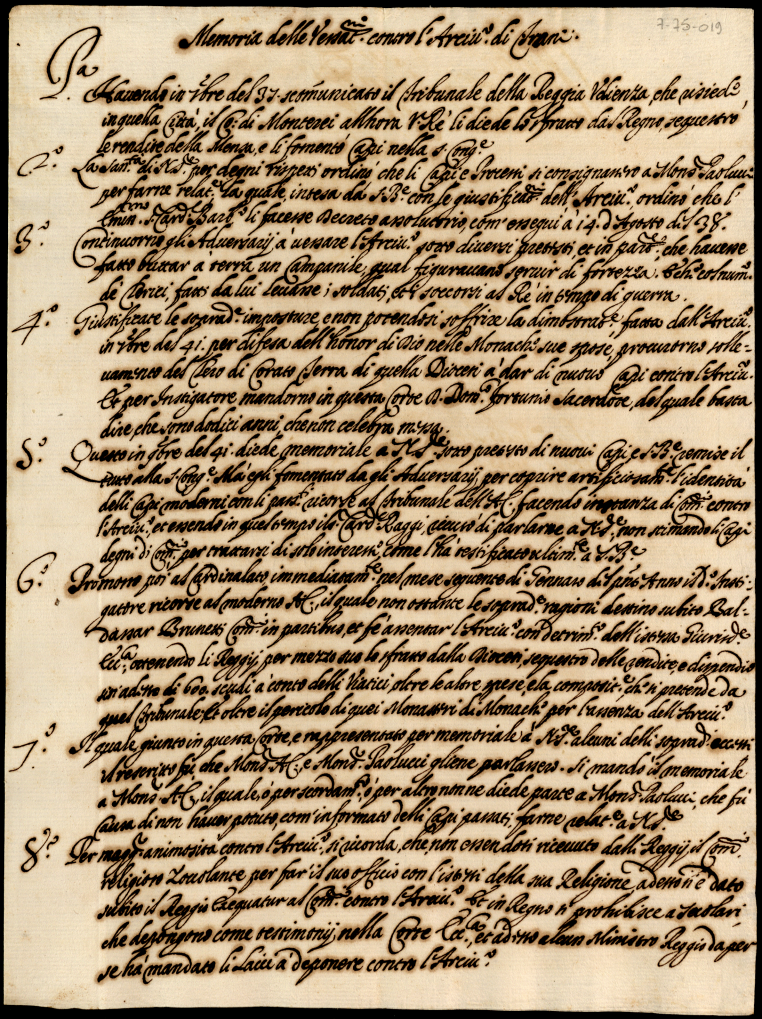 7-75-019
Memoria delle Vessat.ni contro l'Arciv.o di Trani.
P.a Havendo in 9bre del 37 scomunicato il Tribunale della Reggia Udienza, che risiede
in quella Città, il Co: di Monterei all'hora V.Re li diede lo sfratto dal Regno, sequestrò
le rendite della Mensa, e li fomentò Capi nella S. Cong.e
2.o La San.tà di N.S.re per degni rispetti ordinò che li Capi e Processi si consignassero a Mons.r Paolucci
per farne relat.e, la quale, intesa da S. B.e con le giustificat.ni dell'Arciv.o ordinò che l'
Emin.mo S. Card. Barb.o li facesse Decreto assolutorio, com' esseguì à 14. d'Agosto del 38.
3.o Continuorno gli Adversarij à vessare l'Arciv.o sotto diversi pretesti, et in part.re, che havesse
fatto buttar à terra un Campanile, qual figuravano servir di fortezza. Et ch.
de Clerici, fatti da lui levasse i soldati, et i soccorsi al Rè in tempo di guerra.
4.o Giustificate le soprad.e imposture, e non potendosi soffrire la dimostrat.e fatta dall'Arciv.o
in 9bre del 41. per difesa dell'honor di Dio nelle Monach.e sue spose, procurorno solle-
vamento del Clero di Corato Terra di quella Diocesi à dar di nuovo Capi contro l'Arciv.o
Et per Instigatore mandorno in questa Corte D. Dom.o Fortunio Sacerdote, del quale basta
dire, che sono dodici anni, che non celebra messa.
5.o Questo in 9bre del 41. diede memoriale a N.S.re sotto pretesto di nuovi Capi, e S. B.e remise il
tutto alla S. Cong.e Mà egli fomentato da gli Adversarij, per coprire artificiosam.te l'identità
delli Capi moderni con li pass.ti ricorse al Tribunale dell'A.C. facendo instanza di Com.rio contro
l'Arciv.o, et essendo in quel tempo il S. Card. Raggi, ricusò di parlarne a N.S.re, non stimando li Capi
degni di Com.rio, per trattarsi di solo interesse, come l'hà testificato ultim.te a S. B.e
6.o Promosso poi al Cardinalato, immediatam.te nel mese seguente di Gennaro del pnte Anno il d.o Insti-
gatore ricorse al moderno A.C., il quale non ostante le soprad.e ragioni destinò subito Bal-
dassar Brunetti Com.rio in partibus, et fè assentar l'Arciv.o con detrim.to dell'istessa Giurisd.e
Ecc.ca, ottenendo li Reggij per mezzo suo lo sfratto dalla Diocesi, sequestro delle rendite, e dispendio
sin' adesso di 600. scudi à conto delli Viatici oltre le altre spese, e la composit.e ch. si pretende da
quel Tribunale, Et oltre il pericolo di quei Monasteri di Monach.e per l'assenza dell'Arciv.o
7.o Il quale, giunto in questa Corte, e rappresentato per memoriale à N.S.re alcuni delli soprad.i eccessi
il rescritto fù, che Mons.r A.C., e Mons.r Paolucci gliene parlassero. Si mandò il memoriale
a Mons.r A.C., il quale, ò per scordam.to, ò per altro non ne diede parte a Mons.r Paolucci, che fù
causa di non haver potuto, com' informato delli Capi passati, farne relat.e a N.S.re
8.o Per magg.r animosità contro l'Arciv.o si ricorda, che non essendosi ricevuto dalli Reggij il Com.rio
religioso Zoccolante per far il suo officio con l'istessi della sua Religione, adesso si è dato
subito il Reggio Exequatur al Com.rio contro l'Arciv.o Et in Regno si prohibisce a secolari
che depongono come testimonij nella Corte Ecc.ca, et adesso alcun Ministro Reggio da per
se hà mandato li Laici à deponere contro l'Arciv.o